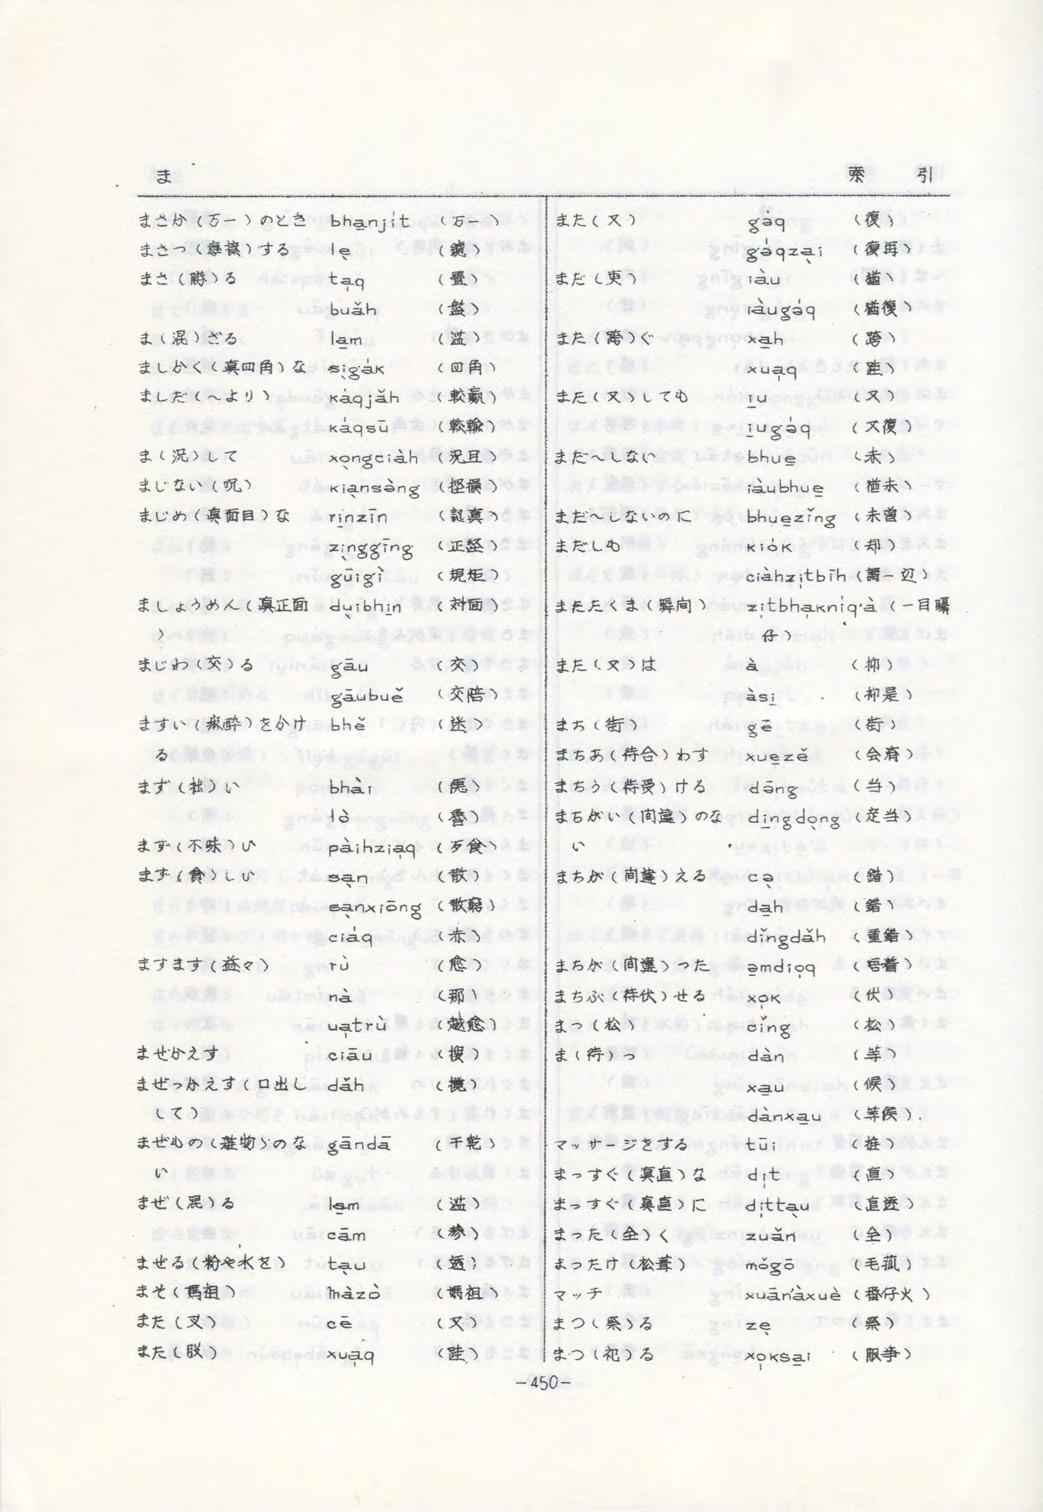 ま
索 引
まさか(万一)のとき bhạnjı́t (万一)
まさつ(摩擦)する lẹ (鑢)
まさ(勝)る tạq (疊)
buǎh (盤)
ま(混)ざる la̱m (濫)
ましかく(真四角)な sı̣gȧk (四角)
ましだ(〜より) kȧqjǎh (較贏)
kȧqsū (較輸)
ま(況)して xọngciàh (況且)
まじない(呪) kiạnsàng
まじめ(真面目)な rı̣nzīn (認真)
zı̣nggīng (正経)
gūigì (規矩)
ましょうめん(真正面 dụibhi̱n (対面)
)
まじわ(交)る gāu (交)
gāubuě (交陪)
ますい(麻酔)をかけ bhě (迷)
る
まず(拙)い bhài
lò (魯)
まず(不味)い pàihzia̱q (歹食)
まず(貧)しい sạn (散)
sạnxiōng (散窮)
ciáq (赤)
ますます(益々) rù (愈)
nà (那)
uạtrù (越愈)
まぜかえす ciāu (搜)
まぜっかえす(口出し dǎh
して)
まぜもの(雑物)のな gāndā (干乾)
い
まぜ(混)る la̱m (濫)
cām (参)
まぜる(粉や水を) tạu (透)
まそ(媽祖) hàzò (媽祖)
また(叉) cē (叉)
また(股) xuạq
また(又) gȧq (復)
gȧqzại (復再)
まだ(未) iàu (猶)
iàugȧq (猶復)
また(跨)ぐ xa̱h (跨)
xuạq
また(又)しても i̱u (又)
i̱ugȧq (又復)
まだ〜しない bhue̱ (未)
iàubhue̱ (猶未)
まだ〜しないのに bhue̱zǐng (未曽)
まだしも kiȯk (却)
ciàhzı̣tbīh
またたくま(瞬間) zı̣tbhạknı̣q'à (一目𥍉
仔)
また(又)は à (抑)
àsi̱ (抑是)
まち(街) gē (街)
まちあ(待合)わす xue̱zě (会齊)
まちう(待受)ける dōng (当)
まちがい(間違)のな di̱ngdọng (定当)
い
まちが(間違)える cạ (錯)
da̱h (錯)
dǐngdǎh (重錯)
まちが(間違)った ạmdiọq
まちぶ(待伏)せる xọk (伏)
まつ(松) cǐng (松)
ま(待)つ dàn (等)
xa̱u (候)
dànxa̱u (等候)
マッサージをする tūi (推)
まっすぐ(真直)な dı̣t (直)
まっすぐ(真直)に dı̣ttạu (直透)
まった(全)く zuǎn (全)
まったけ(松茸) mǒgō (毛菰)
マッチ xuān'àxuè (番仔火)
まつ(祭)る zẹ (祭)
まつ(祀)る xọksại
-450-